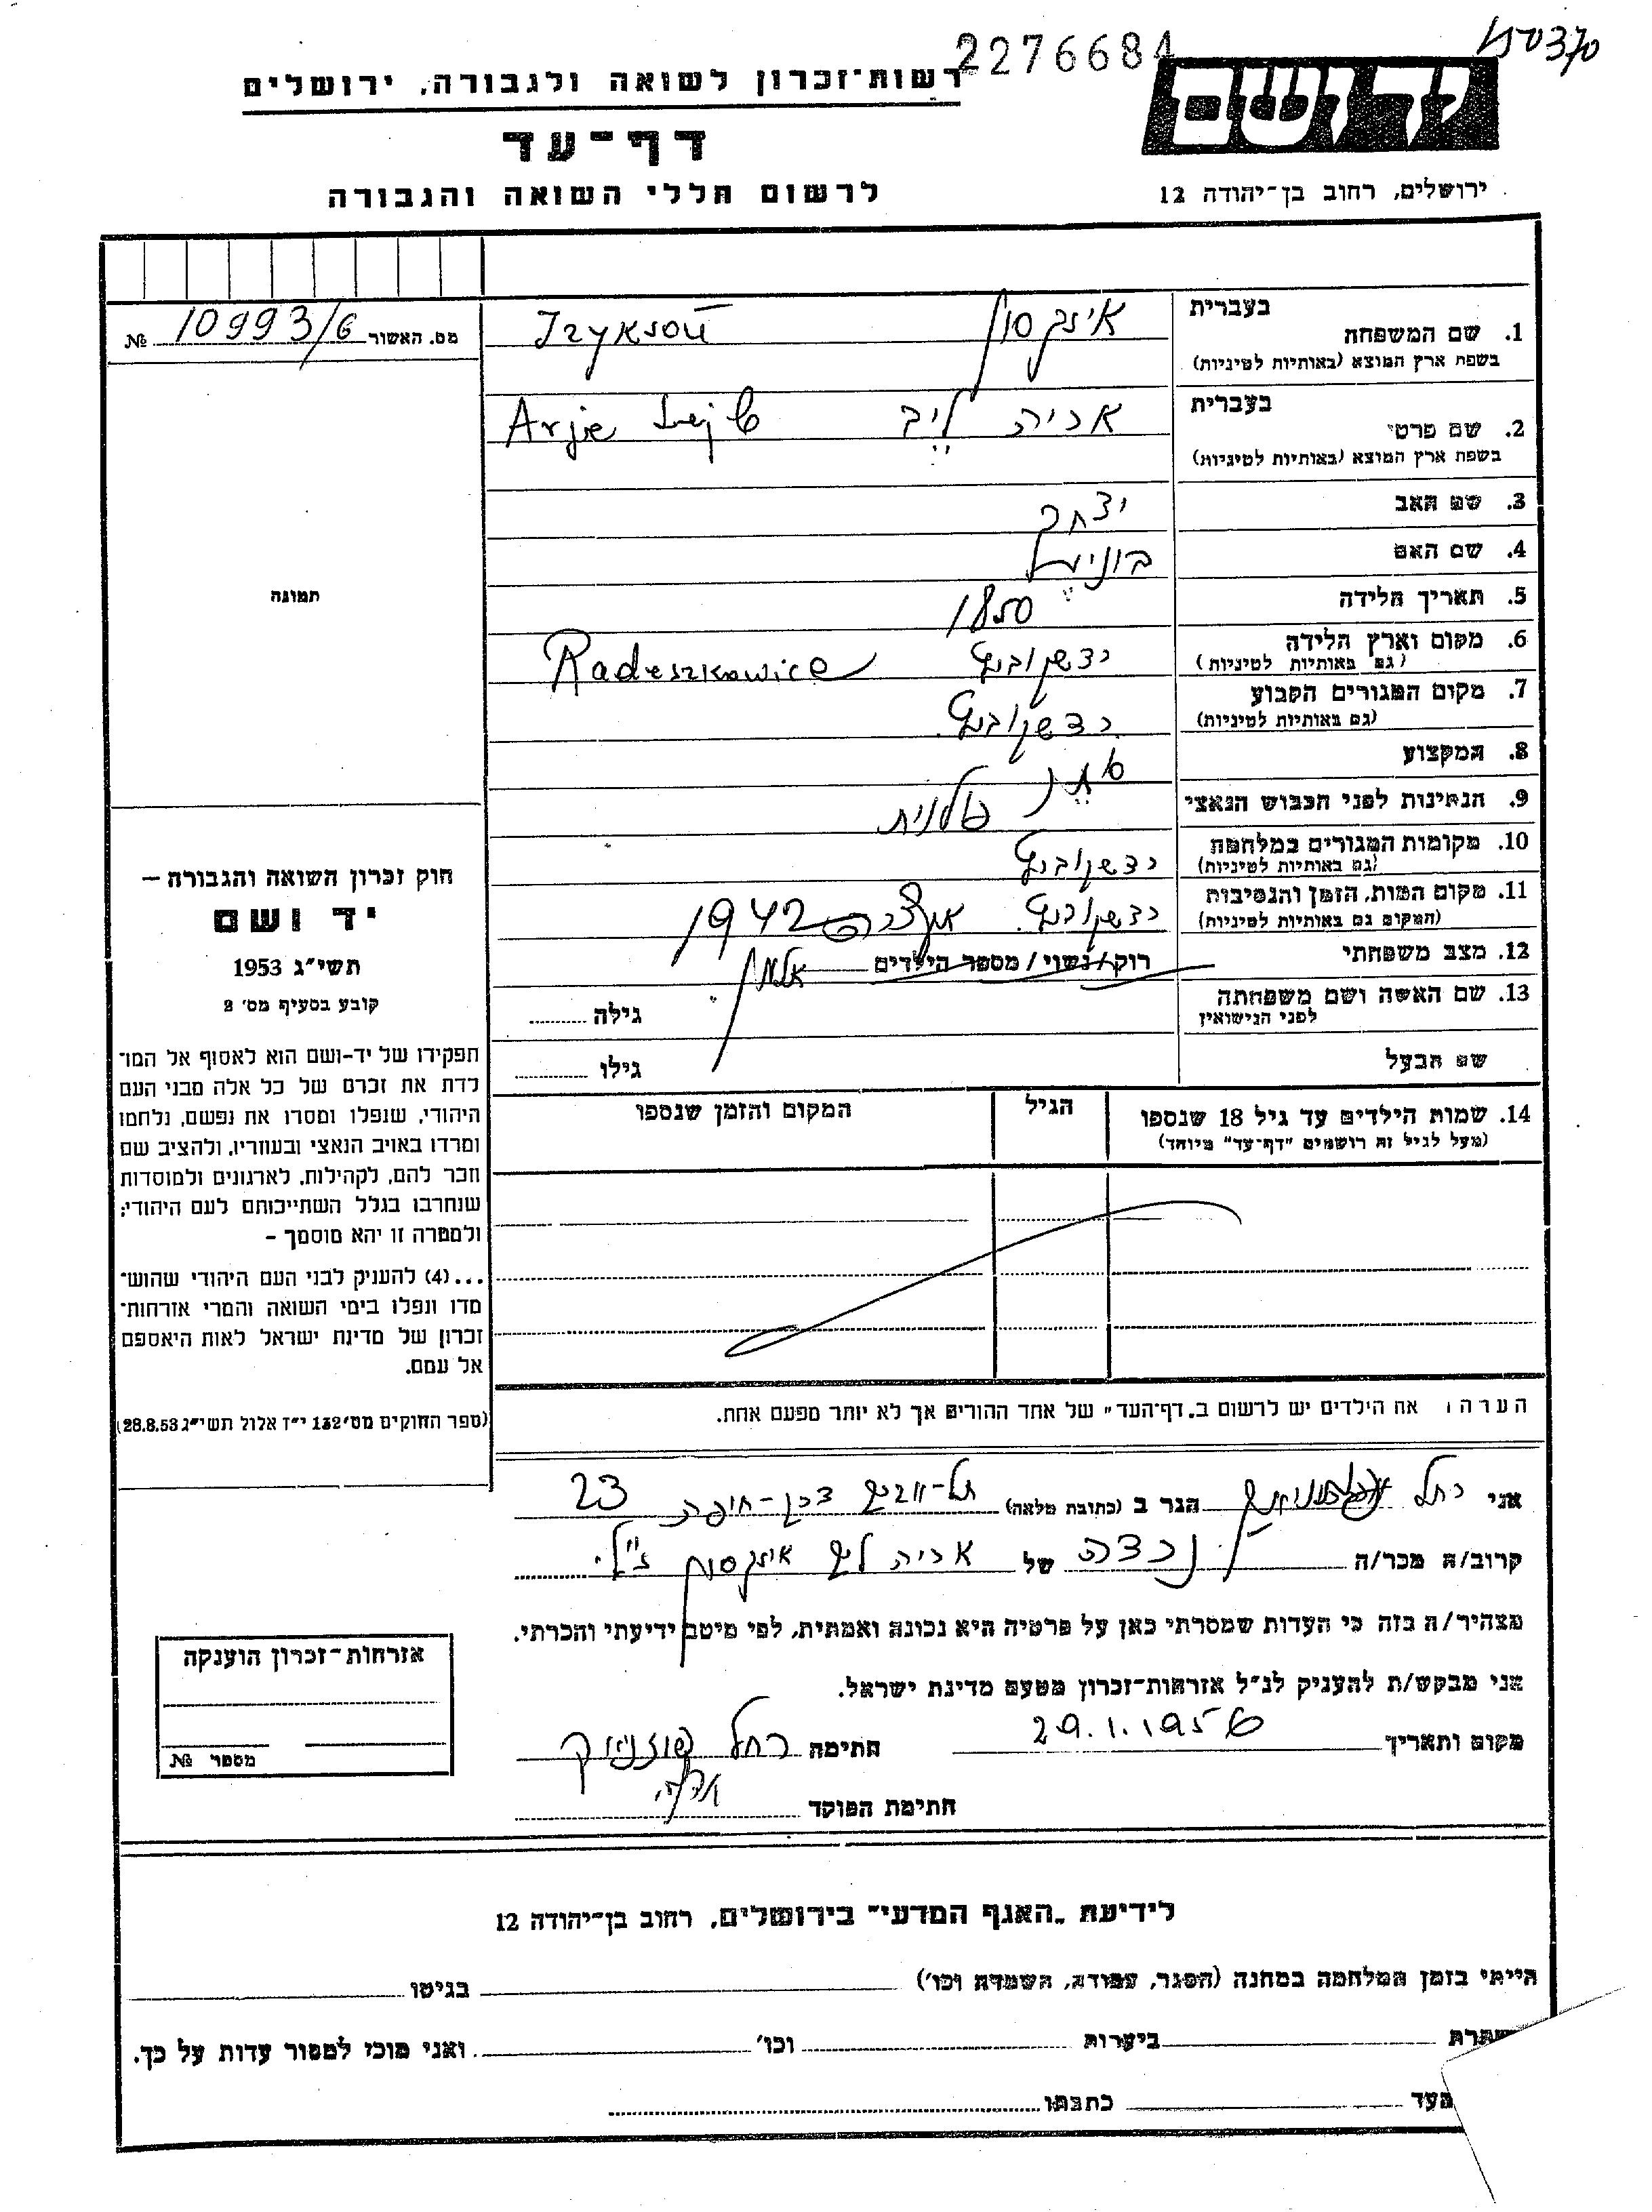 2276684
רשות־זכרון לשואה ולגבורה, ירושלים
דף־עד
לרשום חללי השואה והגבורה
ירושלים, רחוב בן־יהודה 12
מס. האשור 10993/6 №
1. שם המשפחה
בעברית איזקסון Izykson
בשפת ארץ המוצא (באותיות לטיניות)
2. שם פרטי
בעברית אריה ליב Arje Lejb
בשפת ארץ המוצא (באותיות לטיניות)
3. שם האב יצחק
4. שם האם
5. תאריך הלידה 1850
6. מקום וארץ הלידה רדשקוביץ Radeszkowice
(גם באותיות לטיניות)
7. מקום המגורים הקבוע רדשקוביץ
(גם באותיות לטיניות)
8. המקצוע
9. הנתינות לפני הכבוש הנאצי פולנית
10. מקומות המגורים במלחמה רדשקוביץ
(גם באותיות לטיניות)
11. מקום המות, הזמן והנסיבות רדשקוביץ. 1942
(המקום גם באותיות לטיניות)
12. מצב משפחתי רוק/נשוי/מספר הילדים אלמן
13. שם האשה ושם משפחתה
לפני הנישואין גילה
שם הבעל גילו
14. שמות הילדים עד גיל 18 שנספו הגיל המקום והזמן שנספו
(מעל לגיל זה רושמים "דף־עד" מיוחד)
הערה: את הילדים יש לרשום ב„דף־העד" של אחד ההורים אך לא יותר מפעם אחת.
תמונה
חוק זכרון השואה והגבורה —
יד ושם
תשי"ג 1953
קובע בסעיף מס' 2
תפקידו של יד-ושם הוא לאסוף אל המו־
לדת את זכרם של כל אלה מבני העם
היהודי, שנפלו ומסרו את נפשם, נלחמו
ומרדו באויב הנאצי ובעוזריו, ולהציב שם
וזכר להם, לקהילות, לארגונים ולמוסדות
שנחרבו בגלל השתייכותם לעם היהודי;
ולמטרה זו יהא מוסמך –
...(4) להעניק לבני העם היהודי שהוש־
מדו ונפלו בימי השואה והמרי אזרחות־
זכרון של מדינת ישראל לאות היאספם
אל עמם.
(ספר החוקים מס' 132 י"ז אלול תשי"ג 28.8.53)
אני רחל הגר ב (כתובת מלאה) תל-אביב דרך-חיפה 23
קרוב/ה מכר/ה נכדה של אריה ליב איזקסון ז"ל.
מצהיר/ה בזה כי העדות שמסרתי כאן על פרטיה היא נכונה ואמתית, לפי מיטב ידיעתי והכרתי.
אני מבקש/ת להעניק לנ"ל אזרחות־זכרון מטעם מדינת ישראל.
מקום ותאריך 29.1.1956 חתימה רחל
חתימת הפוקד
אזרחות־זכרון הוענקה
מספר №
לידיעת „האגף המדעי" בירושלים, רחוב בן־יהודה 12
הייתי בזמן המלחמה במחנה (הסגר, עבודה, השמדה וכו') בגיטו
ביערות וכו' ואני מוכן למסור עדות על כך.
העד כתבתו